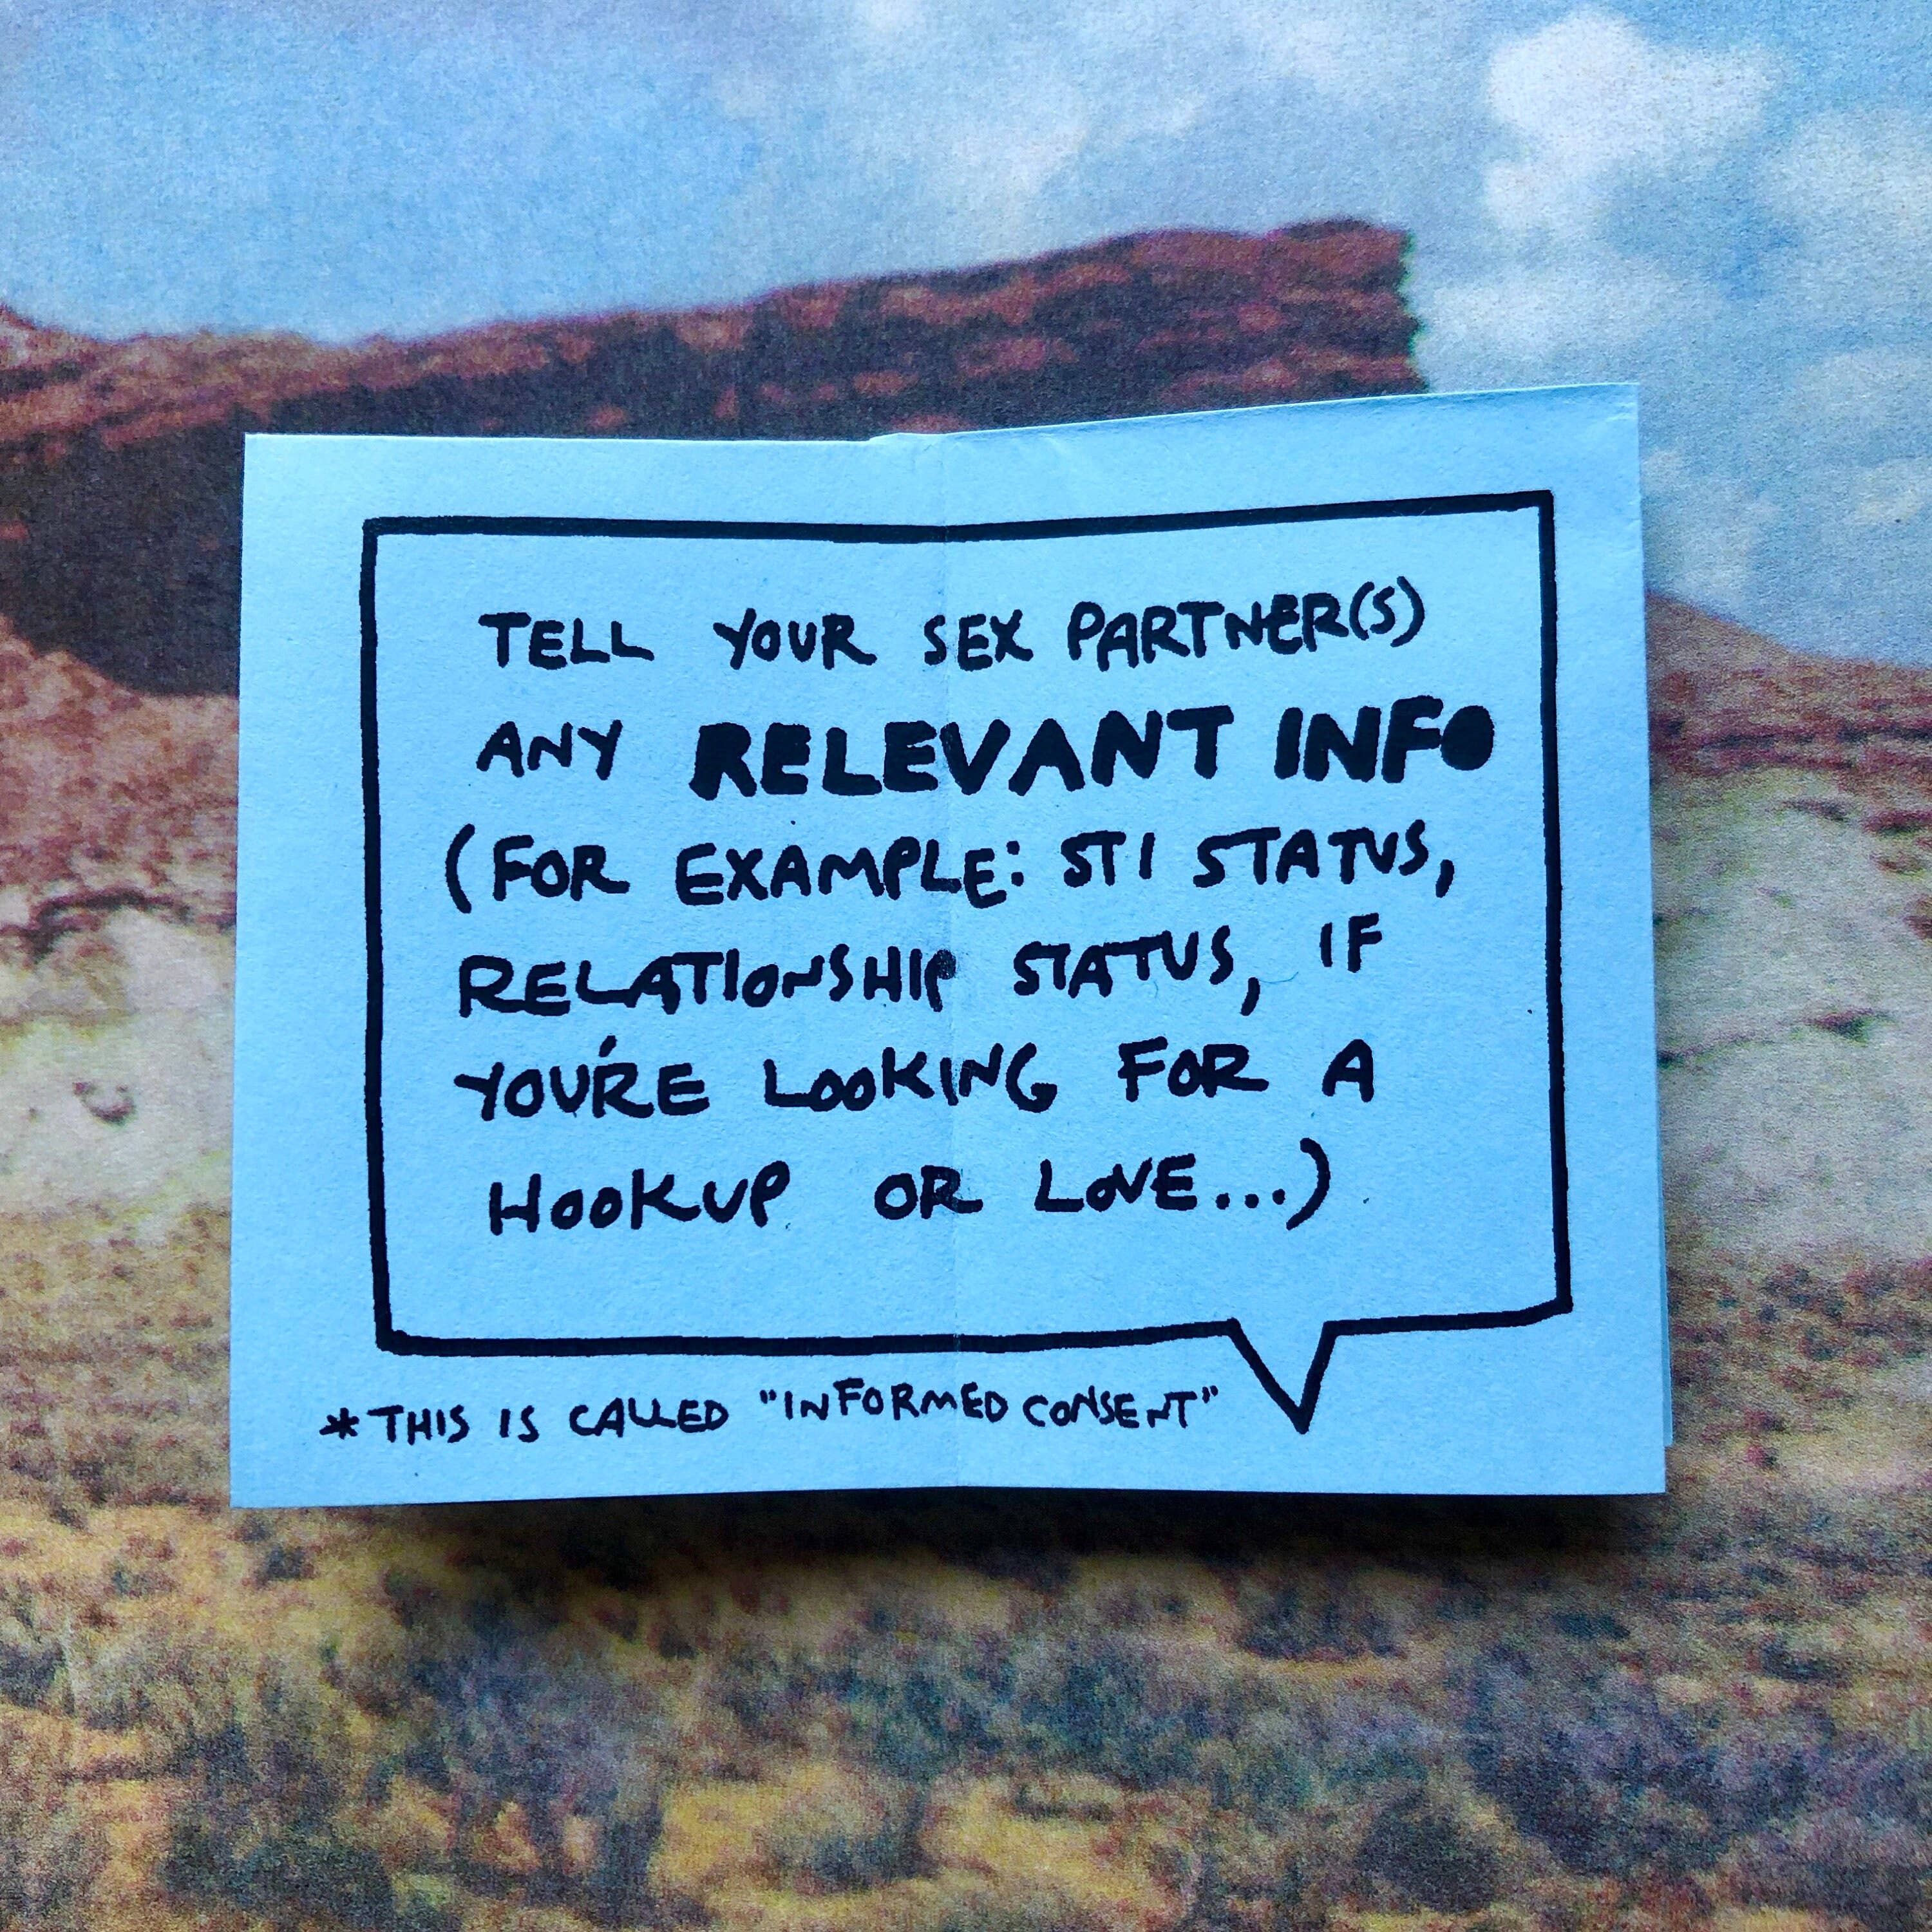 TELL YOUR SEX PARTNER(S)
ANY RELEVANT INFO
(FOR EXAMPLE: STI STATUS,
RELATIONSHIP STATUS, IF
YOU'RE LOOKING FOR A
HOOKUP OR LOVE...)
*THIS IS CALLED "INFORMED CONSENT"